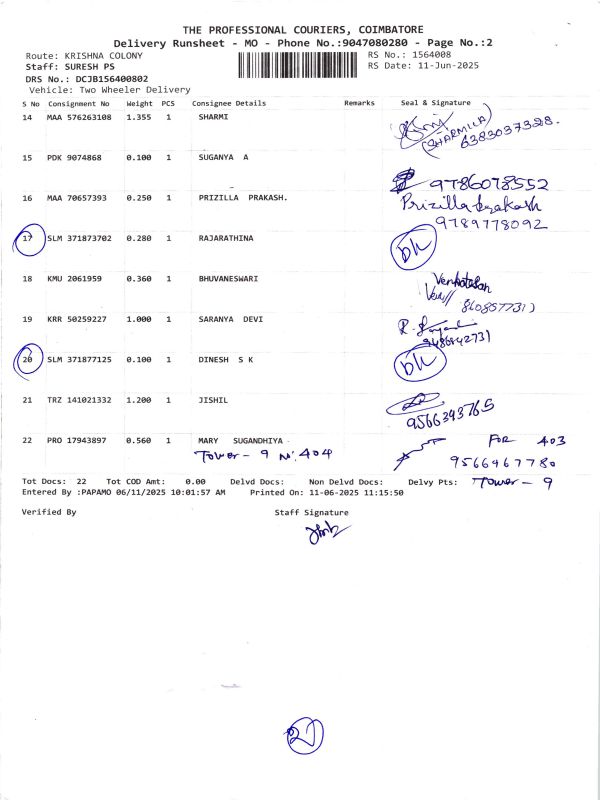 THE PROFESSIONAL COURIERS, COIMBATORE
Delivery Runsheet - MO - Phone No.:9047080280 - Page No.:2
Route: KRISHNA COLONY RS No.: 1564008
Staff: SURESH PS RS Date: 11-Jun-2025
DRS No.: DCJB156400802
Vehicle: Two Wheeler Delivery
S No Consignment No Weight PCS Consignee Details Remarks Seal & Signature
14 MAA 576263108 1.355 1 SHARMI
(SHARMILA)
6383037328.
15 PDK 9074868 0.100 1 SUGANYA A
9786078552
16 MAA 70657393 0.250 1 PRIZILLA PRAKASH.
Prizilla Prakash
9789778092
17 SLM 371873702 0.280 1 RAJARATHINA
18 KMU 2061959 0.360 1 BHUVANESWARI
Venkatesan
19 KRR 50259227 1.000 1 SARANYA DEVI
20 SLM 371877125 0.100 1 DINESH S K
21 TRZ 141021332 1.200 1 JISHIL
9566393765
22 PRO 17943897 0.560 1 MARY SUGANDHIYA FOR 403
Tower - 9 No. 404 9566467780
Tot Docs: 22 Tot COD Amt: 0.00 Delvd Docs: Non Delvd Docs: Delvy Pts: Tower - 9
Entered By :PAPAMO 06/11/2025 10:01:57 AM Printed On: 11-06-2025 11:15:50
Verified By Staff Signature